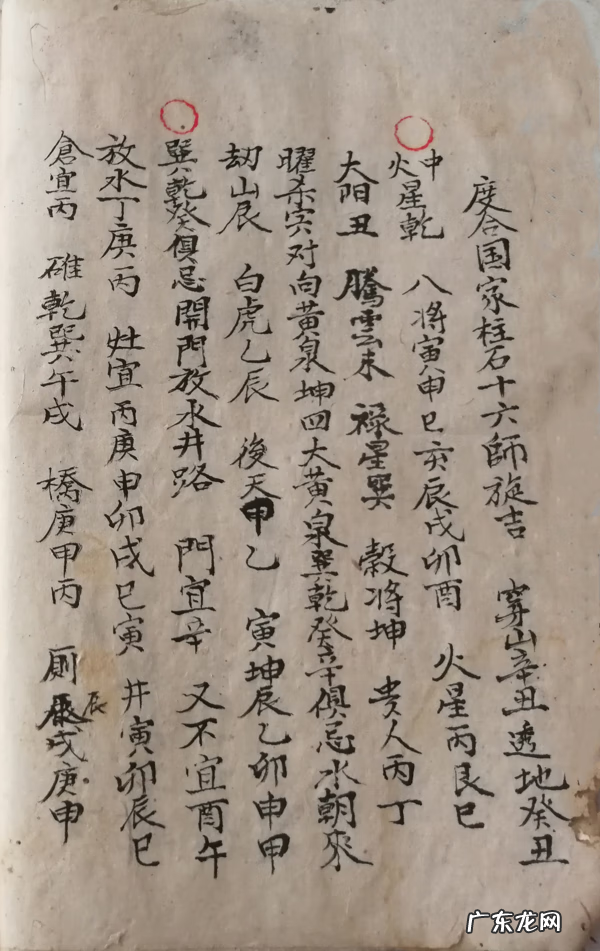 度合国家柱石十六師旋吉 穿山辛丑透地癸丑
中火星乾 八将寅申巳亥辰戌卯酉 火星丙艮巳
大阳丑 騰雲未 祿星巽 穀将坤 貴人丙丁
曜杀宾对向黄泉坤四大黄泉巽乾癸辛俱忌水朝來
劫山辰 白虎乙辰 後天甲乙 寅坤辰乙卯申甲
巽乾癸俱忌開門放水井路 門宜辛 又不宜酉午
放水丁庚丙 灶宜丙庚申卯戌巳寅 井寅卯辰巳
倉宜丙 碓乾巽午戌 橋庚甲丙 厠辰戌庚申
广东龙网